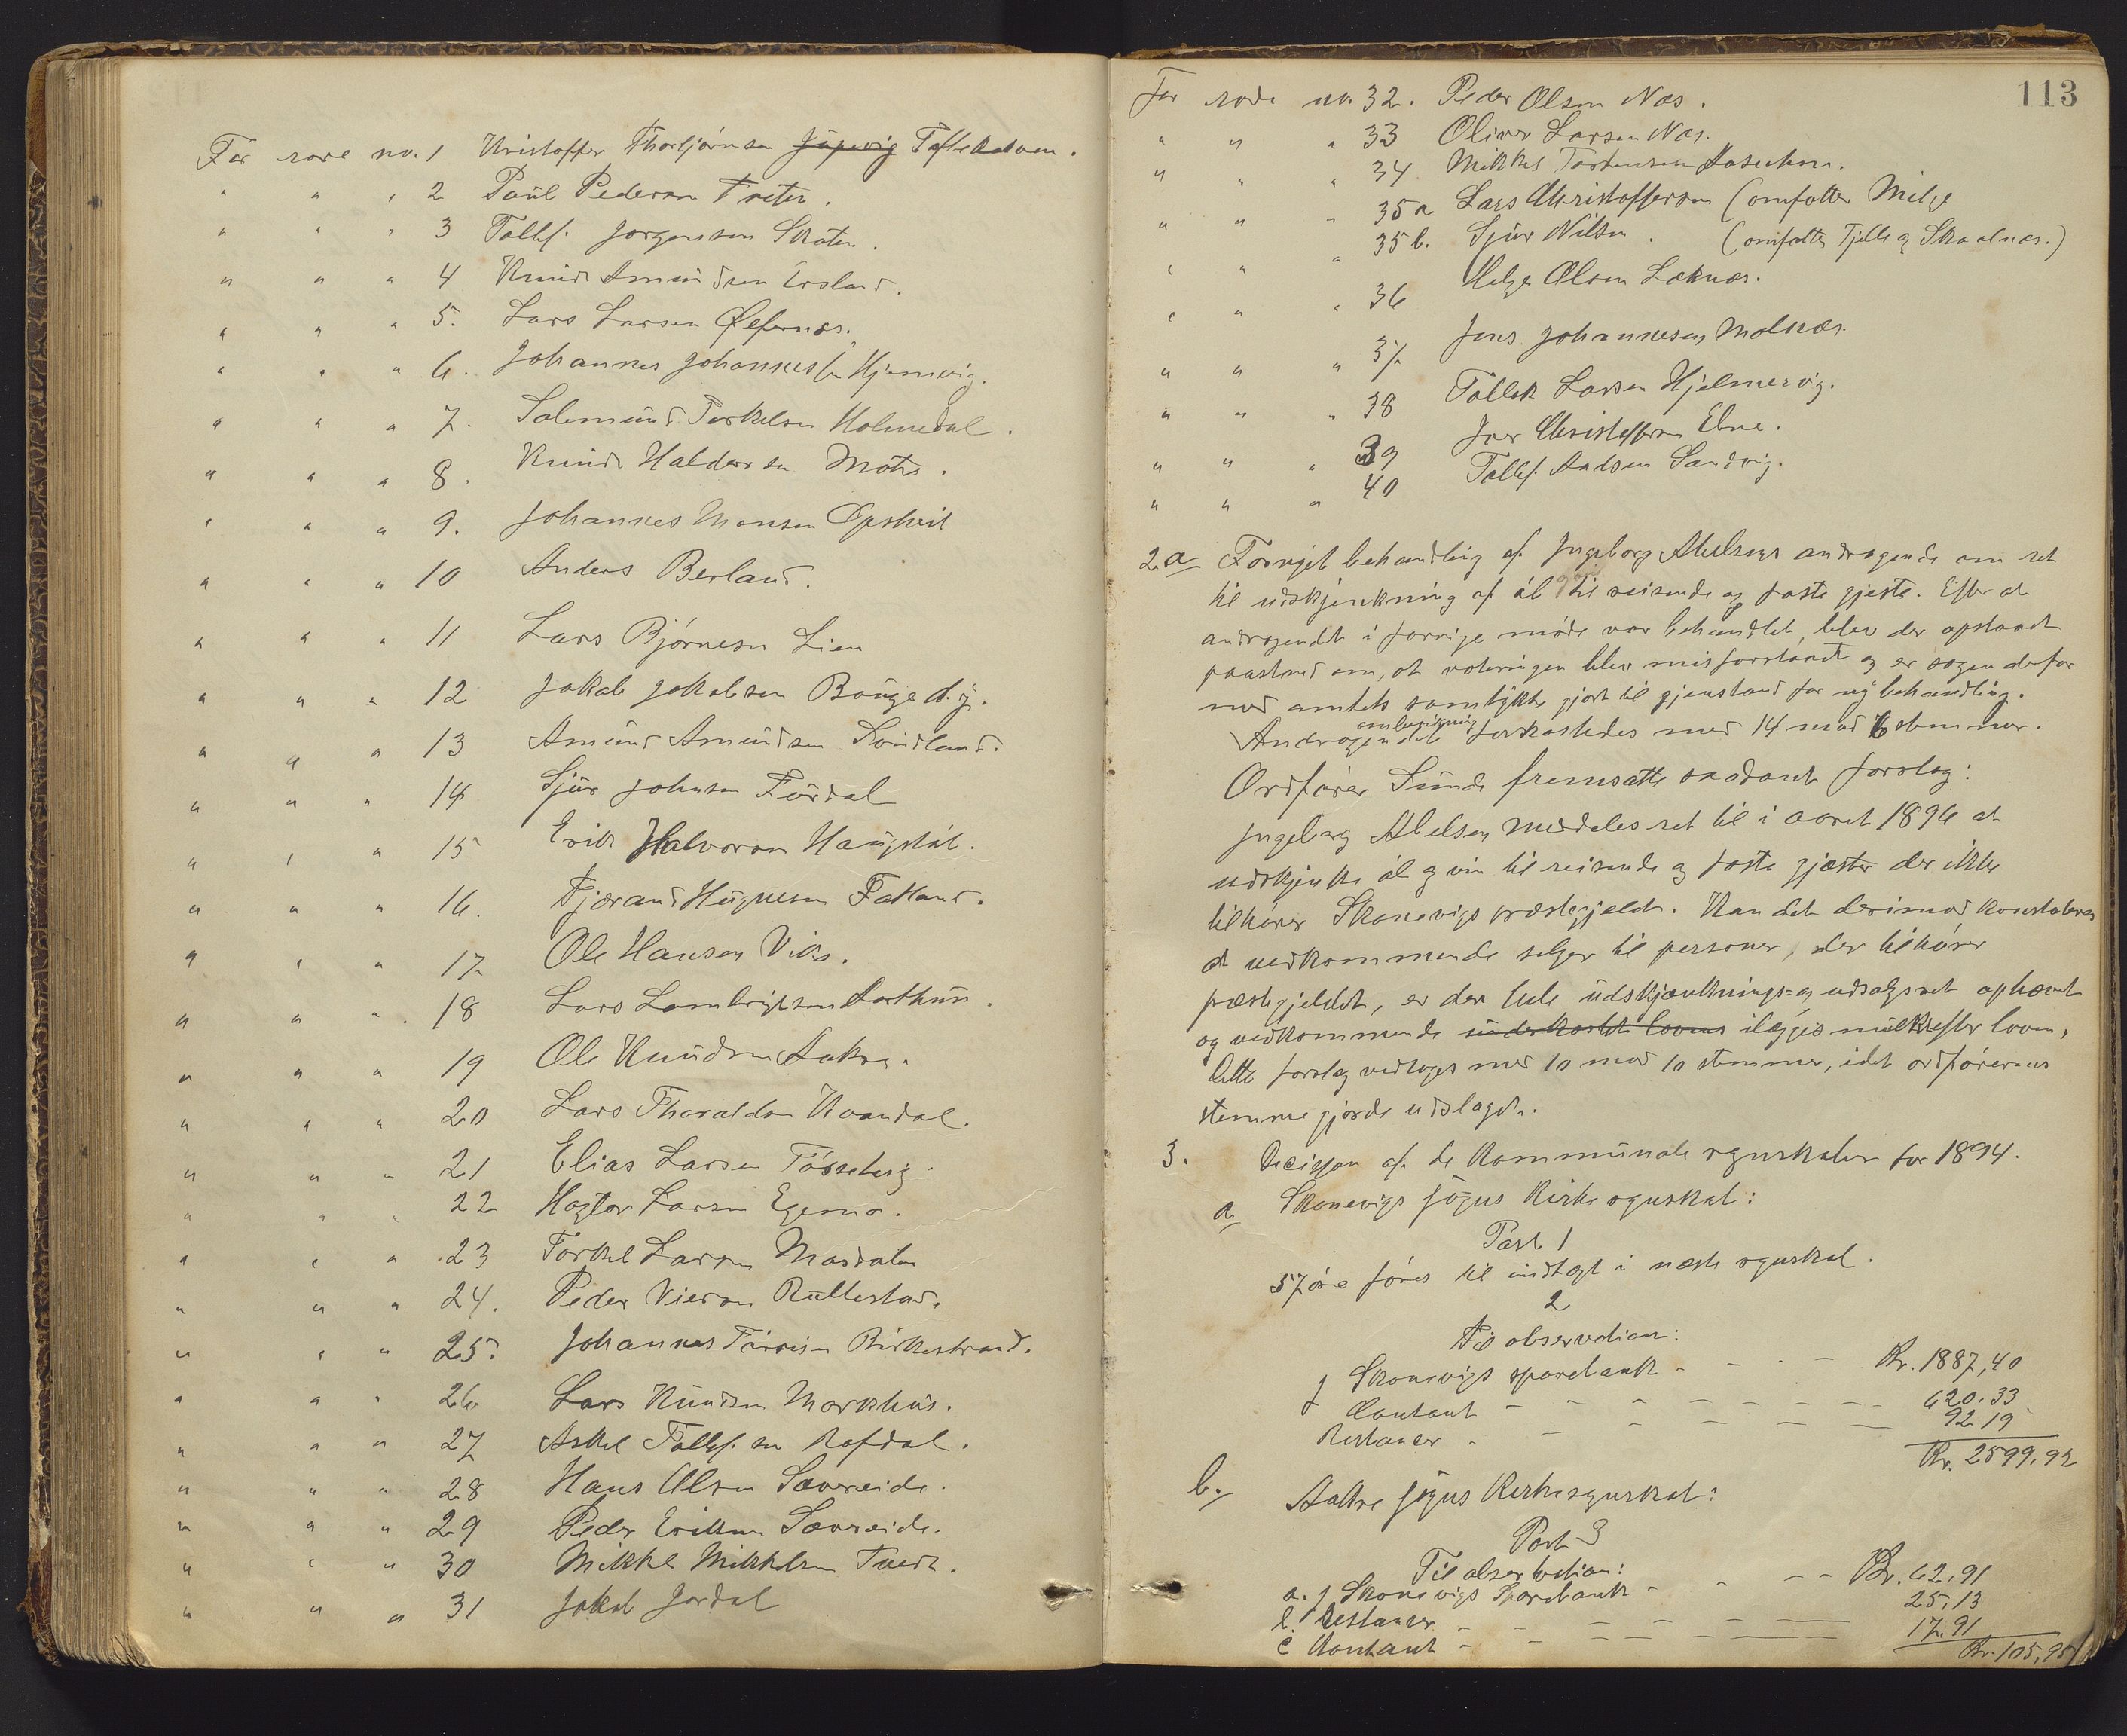 For rode no. 1 Kristoffer Thorbjørnsen Jupevig Toftekalven.
" " " 2 Paul Pedersen Træten.
" " " 3 Tollef. Jørgensen Skaten.
" " " 4 Knud Amundsen Ersland.
" " " 5. Lars Larsen Ølfernæs.
" " " 6. Johannes Johannessen
" " " 7. Salemund Torkelsen Holmedal.
" " " 8. Knud Haldorsen Molns.
" " " 9. Johannes Monsen Opsheil
" " " 10 Anders Berland.
" " " 11 Lars Bjørnesen Lien
" " " 12 Jakob Jakobsen Bauge d.y.
" " " 13 Amund Amundsen Svindland.
" " " 14 Sjur Johnsen Fürdal
" " " 15 Erik Halvorsen
" " " 16. Tjerand Hugnesen Fatland.
" " " 17 Ole Hansen Viks.
" " " 18 Lars Lambrigtsen Aarthun.
" " " 19 Ole Knudsen Aakre.
" " " 20 Lars Tharaldsen Kvandal.
" " " 21 Elias Larsen
" " " 22 Hagtor Larsen Egemo.
" " " 23 Torkel Larsen Masdalen
" " " 24. Peder Viersen Rullestad.
" " " 25. Johannes Birkestrand.
" " " 26. Lars Knudsen Markhus.
" " " 27 Askel Tollefsen Rafdal.
" " " 28 Hans Olsen Sævereide.
" " " 29 Peder Eriksen Sævereide.
" " " 30 Mikkel Mikkelsen Tvedt.
" " " 31 Jakob Jordal
113
For rode no. 32. Peder Olsen Næs.
" " " 33 Oliver Larsen Næs.
" " " 34 Mikkel Torstensen
" " " 35a Lars Christoffersen (omfatter Milje
" " " 35b. Sjur Nilsen. (omfatter Tjelle og Skaalnæs.)
" " " 36 Helge Olsen Laknæs.
" " " 37 Jens Johannesen Molnæs.
" " " 38 Tollak Larsen Hjelmervig.
" " " 39 Joer Christoffersen Ebne.
" " " 40 Tollef. Aadsen Sandvig.
2a Fornyet behandling af Ingeborg Abelsens andragende om ret
til udskjenkning af øl til reisende og faste gjeste. Efter at
andragendet i forrige møde var behandlet, blev der opstaaet
paastand om, at voteringen blev misforstaaet og er sagen derfor
med amtets samtykke gjort til gjenstand for ny behandling.
Andragendet forkastedes med 14 mod 6 stemmer.
Ordfører Sunde fremsatte saadant forslag:
Ingeborg Abelsen meddeles ret til i aaret 1896 at
udskjenke øl og vin til reisende og faste gjæster der ikke
tilhører Skonevigs præstegjeld. Kan det derimod konstateres
at vedkommende selger til personer, der tilhører
præstegjeldet, er den hele udskjænknings- og udsalgsret ophævet
og vedkommende underkastet lovens ilægges mulkt efter loven.
Dette forslag vedtoges med 10 mod 10 stemmer, idet ordførerens
stemme gjorde udslaget.
3. Decisjon af de kommunale regnskaber for 1894.
a. Skonevigs sogns kirkeregnskab:
Post 1
57 øre føres til indtægt i næste regnskab.
2
Til observation:
I Skonevigs sparebank - - - - Kr. 1887,40
Contant - - - - - - 620.33
Restancer - - - - - - 92 19
Kr. 2599,92
b. Aakre sogns kirkeregnskab:
Post 3
Til observation:
a. I Skonevigs Sparebank - - - - Kr. 62,91
b. Restancer - - - - 25,13
c Kontant - - - - 17,91
Kr. 105,95